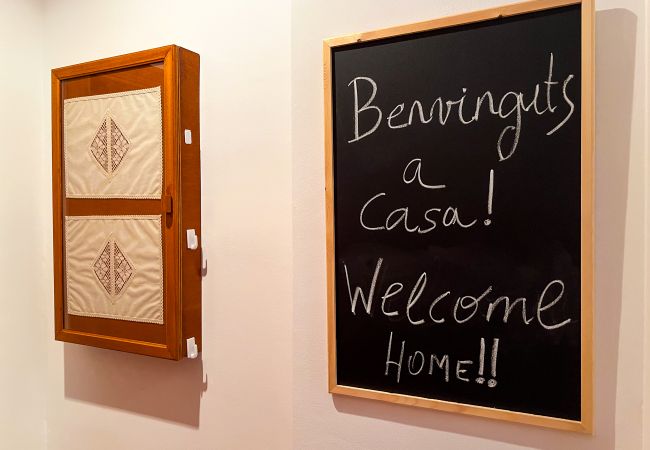 Benvinguts
a
casa!
Welcome
HOME!!